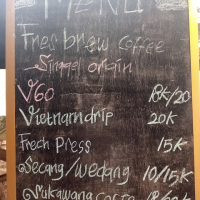 MENU
Fresbrew coffee
Singel origin
V60 18K/20
Vietnamdrip 20K
Frech Press 15K
Secang/wedang 10/15K
Sukawang